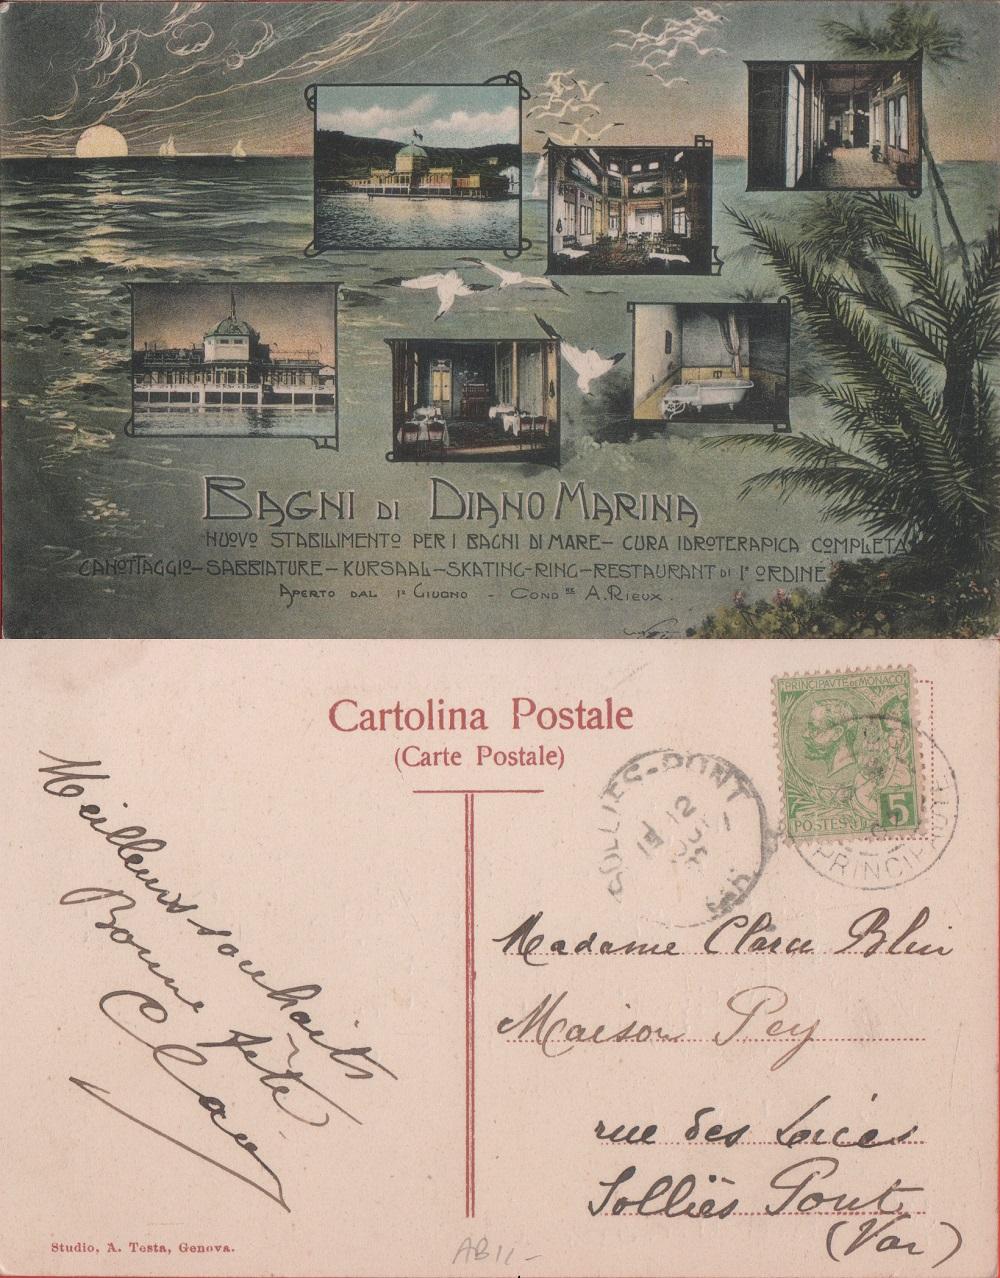 BAGNI DI DIANO MARINA
NUOVO STABILIMENTO PER I BAGNI DI MARE – CURA IDROTERAPICA COMPLETA
CANOTTAGGIO – SABBIATURE – KURSAAL – SKATING-RING – RESTAURANT DI 1º ORDINE
APERTO DAL 1º GIUGNO - COND RE A. RIEUX.
Cartolina Postale
(Carte Postale)
PRINCIPAUTÉ DE MONACO
5
POSTES
SOLLIÈS-PONT
12
PRINCIPAUTÉ
Meilleurs souhaits
Bonne fête
Madame Clara Blin
Maison Pey
rue des
Solliès Pont
(Var)
Studio, A. Testa, Genova.
AB11-